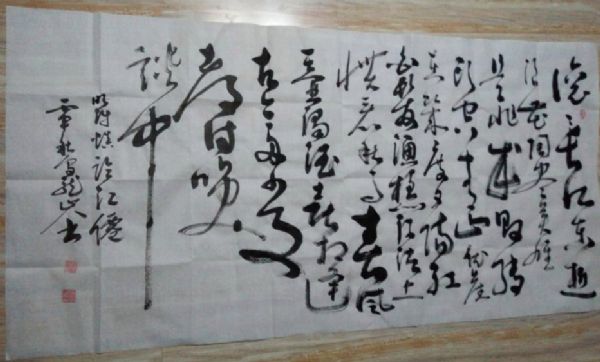 滚滚长江东逝
水浪花淘尽英雄
是非成败转
头空青山依旧
在几度夕阳红
白发渔樵江渚上
惯看秋月春风
一壶浊酒喜相逢
古今多少事
都付笑
谈中
明杨慎临江仙
山人书